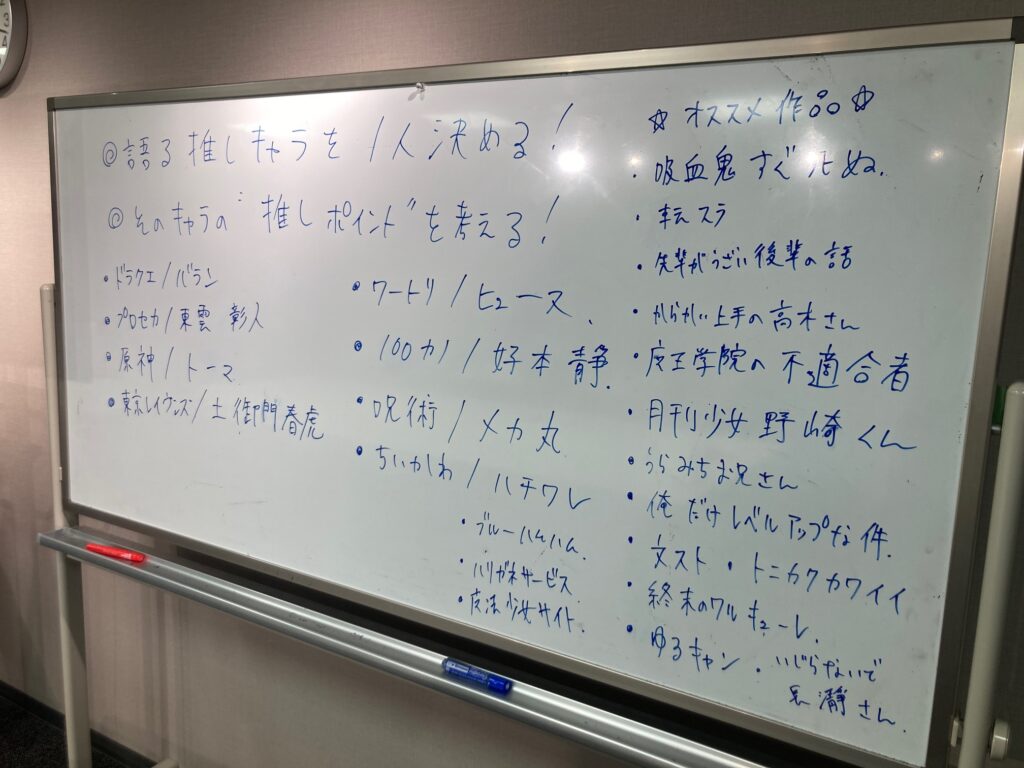 ◎語る推しキャラを1人決める!
◎そのキャラの"推しポイント"を考える!
・ドラクエ/バラン
・プロセカ/東雲 彰人
・原神/トーマ
・東京レイヴンズ/土御門春虎
・ワートリ/ヒュース
・100カノ/好本 静
・呪術/メカ丸
・ちいかわ/ハチワレ
☆オススメ作品☆
・吸血鬼すぐ死ぬ
・転スラ
・先輩がうざい後輩の話
・からかい上手の高木さん
・魔王学院の不適合者
・月刊少女 野崎くん
・うらみちお兄さん
・俺だけレベルアップな件
・文スト ・トニカクカワイイ
・終末のワルキューレ
・ゆるキャン ・いじらないで
長瀞さん
・ブルーハムハム
・ハリガネサービス
・魔法少女サイト